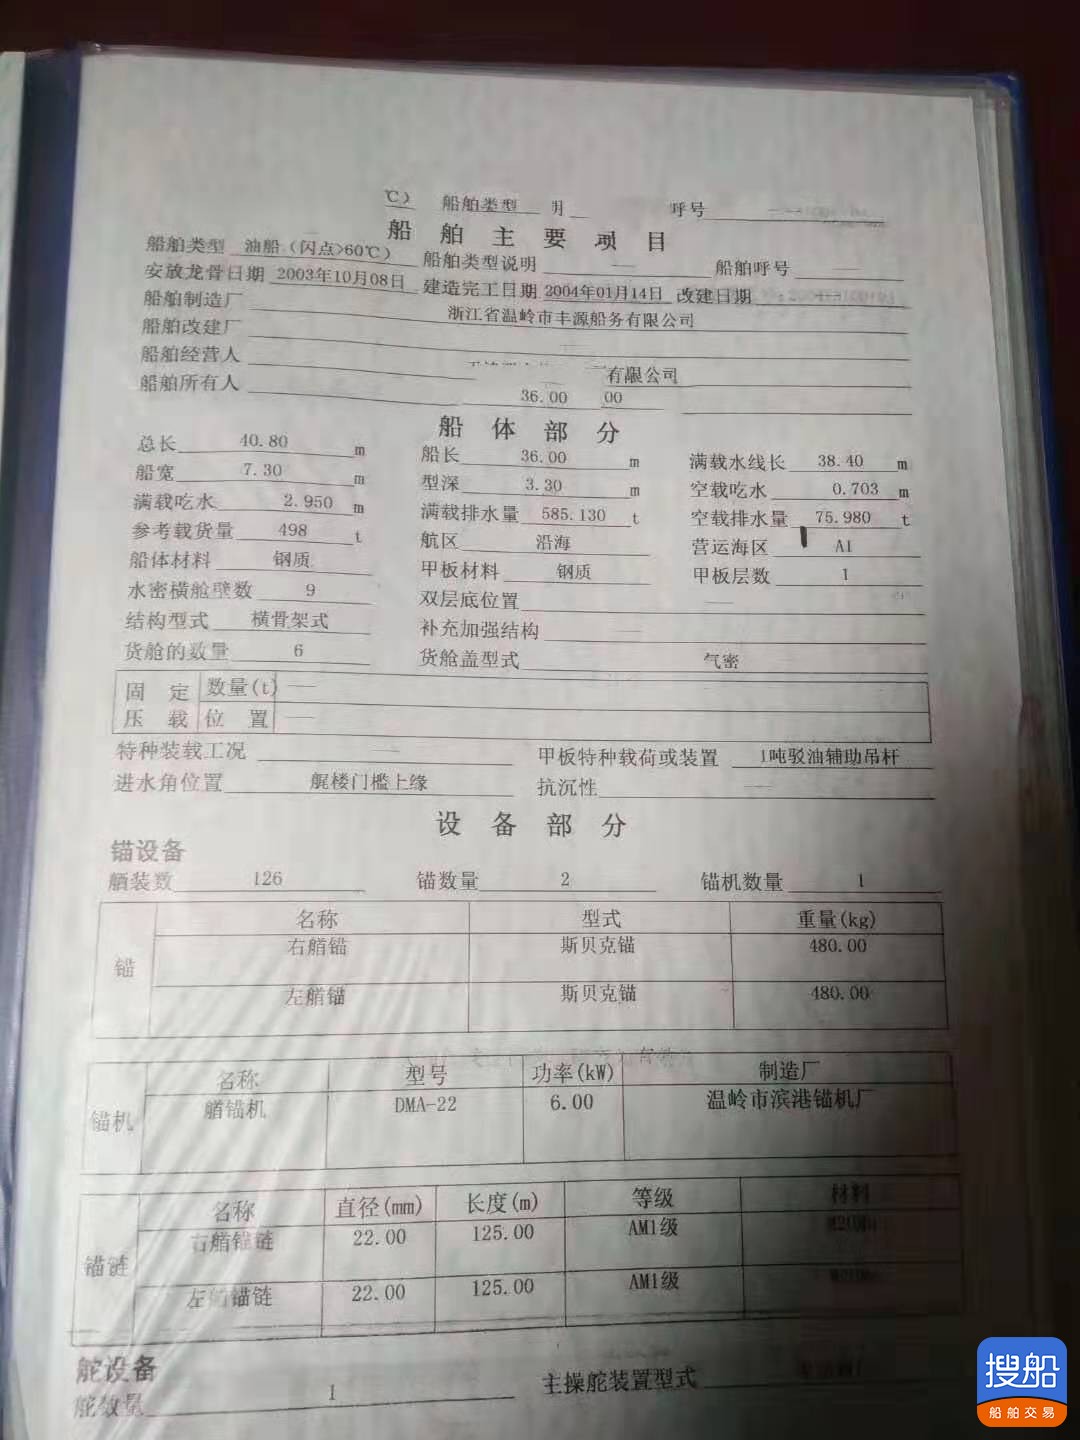 ℃） 船舶类型 月 呼号
船舶主要项目
船舶类型 油船（闪点>60℃） 船舶类型说明 — 船舶呼号 —
安放龙骨日期 2003年10月08日 建造完工日期 2004年01月14日 改建日期
船舶制造厂 浙江省温岭市丰源船务有限公司
船舶改建厂 —
船舶经营人 有限公司
船舶所有人 36.00 00
船体部分
总长 40.80 m 船长 36.00 m 满载水线长 38.40 m
船宽 7.30 m 型深 3.30 m 空载吃水 0.703 m
满载吃水 2.950 m 满载排水量 585.130 t 空载排水量 75.980 t
参考载货量 498 t 航区 沿海 营运海区 A1
船体材料 钢质 甲板材料 钢质 甲板层数 1
水密横舱壁数 9 双层底位置 —
结构型式 横骨架式 补充加强结构 —
货舱的数量 6 货舱盖型式 气密
固定压载 数量(t) —
位置 —
特种装载工况 — 甲板特种载荷或装置 1吨驳油辅助吊杆
进水角位置 艉楼门槛上缘 抗沉性 —
设备部分
锚设备
舾装数 126 锚数量 2 锚机数量 1
锚 名称 型式 重量(kg)
右艏锚 斯贝克锚 480.00
左艏锚 斯贝克锚 480.00
锚机 名称 型号 功率(kW) 制造厂
艏锚机 DMA-22 6.00 温岭市滨港锚机厂
锚链 名称 直径(mm) 长度(m) 等级 材料
右艏锚链 22.00 125.00 AM1级
左艏锚链 22.00 125.00 AM1级
舵设备
舵数量 1 主操舵装置型式
搜船
船舶交易